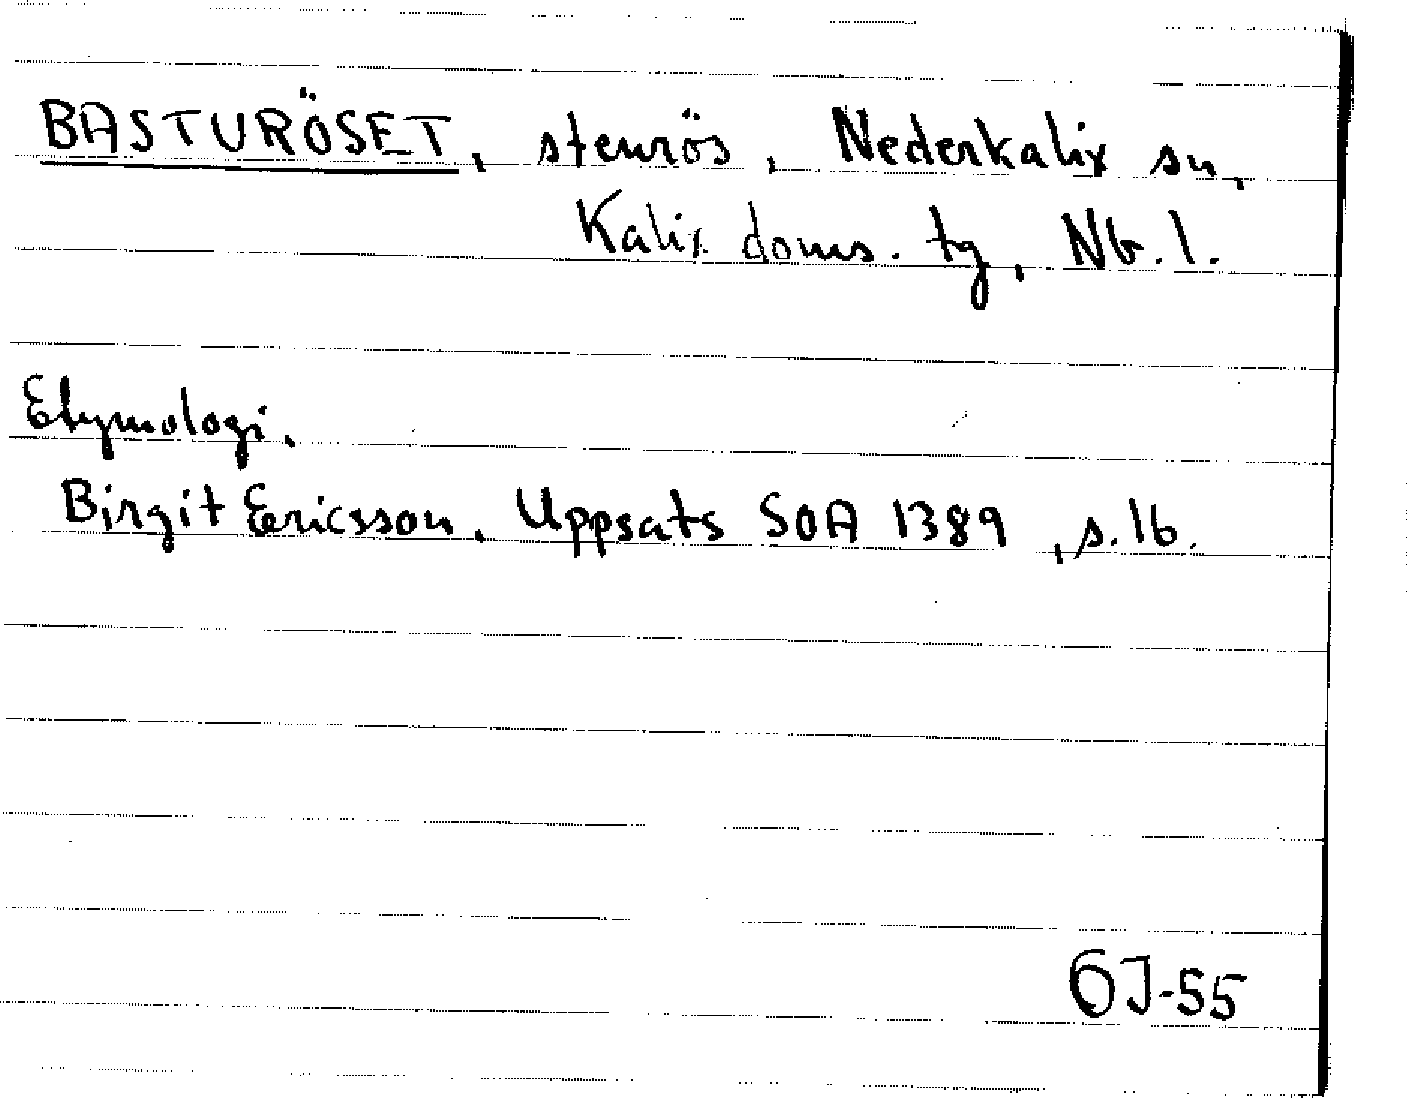 BASTURÖSET, stenrös, Nederkalix sn,
Kalix doms. tg, Nb. l.
Etymologi.
Birgit Ericsson, Uppsats SOA 1389, s. 16.
GJ-55